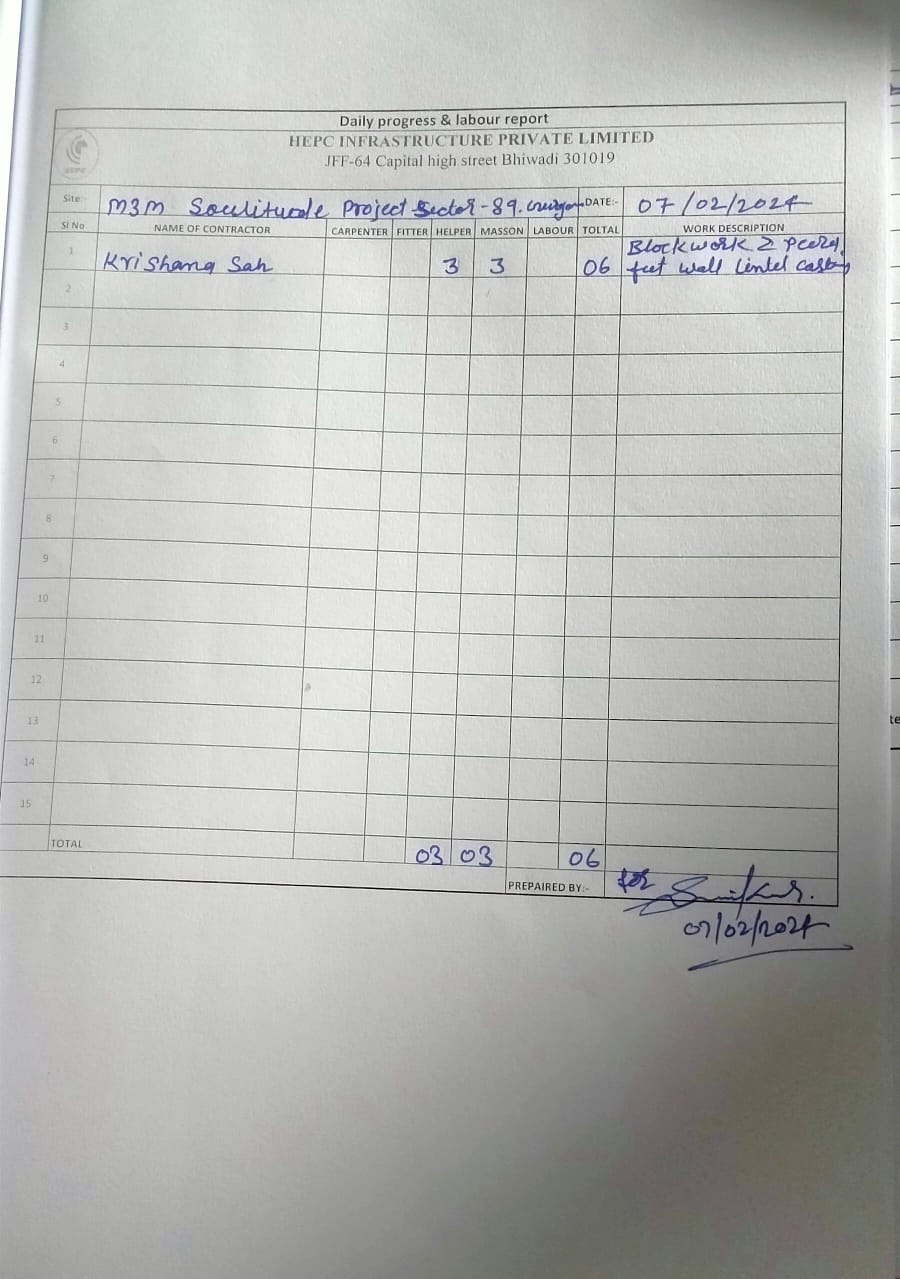 Daily progress & labour report
HEPC INFRASTRUCTURE PRIVATE LIMITED
JFF-64 Capital high street Bhiwadi 301019
HEPC
Site:- M3M Soulitude Project Sector-89. DATE:- 07/02/2024
Sl No NAME OF CONTRACTOR CARPENTER FITTER HELPER MASSON LABOUR TOLTAL WORK DESCRIPTION
1 Krishana Sah 3 3 06 Blockwork 2
feet wall lintel casting
2
3
4
5
6
7
8
9
10
11
12
13
14
15
TOTAL 03 03 06
PREPAIRED BY:- for
07/02/2024